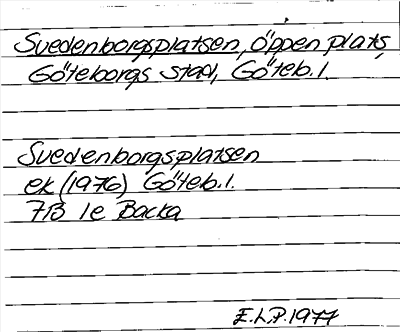 Svedenborgsplatsen, öppen plats,
Göteborgs stad, Göteb. l.
Svedenborgsplatsen
ek (1976) Göteb. l.
7B 1e Backa
E.L.P. 1977